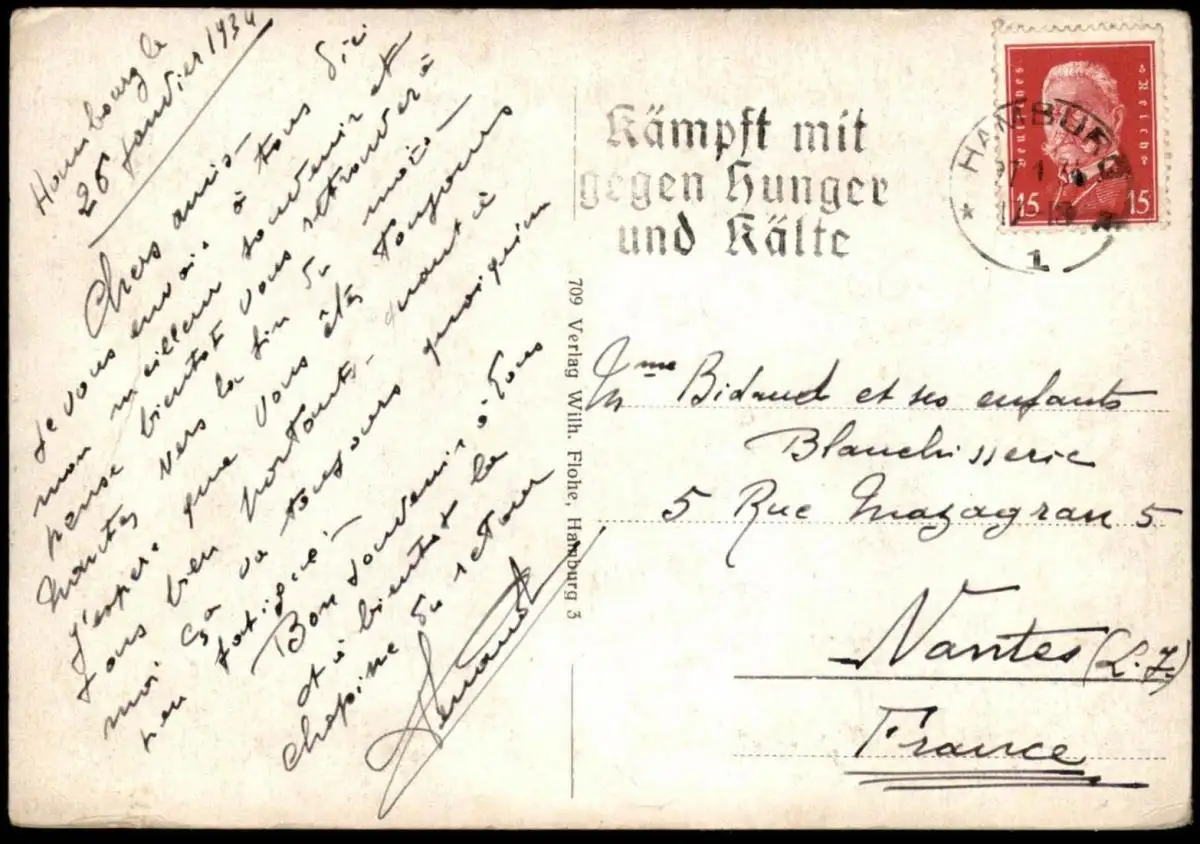 Hambourg le
26 Janvier 1934
Chers amis -
Je vous envoi à tous d'ici
mon meilleur souvenir et
pense bientot vous retrouver à
Nantes vers la fin du mois -
J'espère que vous êtes toujours
tous bien portants - quant à
moi ça va toujours quoique un
peu fatigué -
Bon souvenir à tous
et à bientot la
chopine du retour
709 Verlag Wilh. Flohe, Hamburg 3
Kämpft mit
gegen Hunger
und Kälte
Deutsches Reich
15 15
HAMBURG
1
Mme Bidaud et ses enfants
Blanchisserie
5 Rue Mazagran 5
Nantes (L.I.)
France